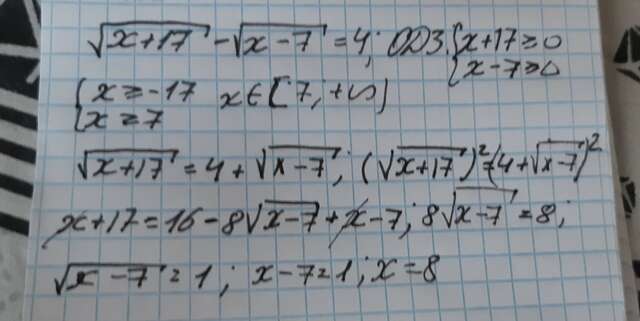 √(x+17) - √(x-7) = 4; ОДЗ {x+17 ≥ 0
{x-7 ≥ 0
{x ≥ -17
{x ≥ 7 x ∈ [7; +∞)
√(x+17) = 4 + √(x-7); (√(x+17))² = (4+√(x-7))²
x+17 = 16 - 8√(x-7) + x - 7; 8√(x-7) = 8;
√(x-7) = 1; x-7=1; x=8